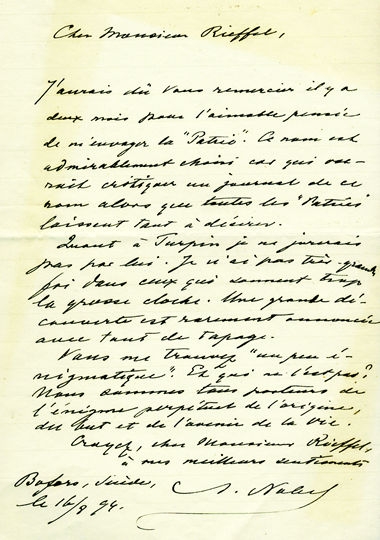 Cher Monsieur Rieffel,
J'aurais dû vous remercier il y a
deux mois pour l'aimable pensée
de m'envoyer la "Patrie". Ce nom est
admirablement choisi car qui ose-
rait critiquer un journal de ce
nom alors que toutes les "Patries"
laissent tant à désirer.
Quant à Turpin je ne jurerais
pas par lui. Je n'ai pas très-grande
foi dans ceux qui sonnent trop
la grosse cloche. Une grande dé-
couverte est rarement annoncée
avec tant de tapage.
Vous me trouvez "un peu é-
nigmatique". Et qui ne l'est pas?
Nous sommes tous porteurs de
l'énigme perpétuel de l'origine,
du but et de l'avenir de la Vie.
Croyez, cher Monsieur Rieffel,
à mes meilleurs sentiments
A. Nobel
Bofors, Suède,
le 16/8 94.